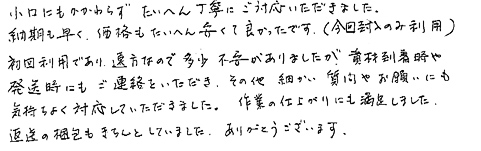 小口にもかかわらず たいへん丁寧にご対応いただきました。
納期も早く、価格もたいへん安くて良かったです。(今回封入のみ利用)
初回利用であり、遠方なので多少不安がありましたが 資材到着時や
発送時にもご連絡をいただき、その他 細かい質問やお願いにも
気持ちよく対応していただきました。 作業の仕上がりにも満足しました。
返送の梱包もきちんとしていました。ありがとうございます。